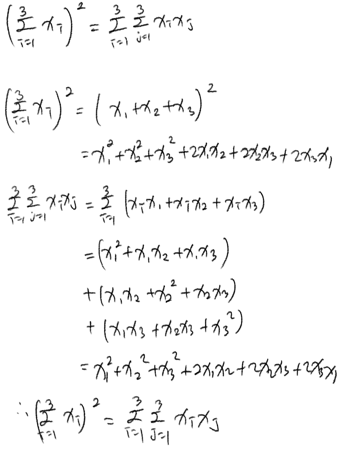 (∑_{i=1}^{3} x_i)^2 = ∑_{i=1}^{3} ∑_{j=1}^{3} x_i x_j
(∑_{i=1}^{3} x_i)^2 = (x_1 + x_2 + x_3)^2
= x_1^2 + x_2^2 + x_3^2 + 2x_1x_2 + 2x_2x_3 + 2x_3x_1
∑_{i=1}^{3} ∑_{j=1}^{3} x_i x_j = ∑_{i=1}^{3} (x_i x_1 + x_i x_2 + x_i x_3)
= (x_1^2 + x_1x_2 + x_1x_3)
+ (x_1x_2 + x_2^2 + x_2x_3)
+ (x_1x_3 + x_2x_3 + x_3^2)
= x_1^2 + x_2^2 + x_3^2 + 2x_1x_2 + 2x_2x_3 + 2x_3x_1
∴ (∑_{i=1}^{3} x_i)^2 = ∑_{i=1}^{3} ∑_{j=1}^{3} x_i x_j